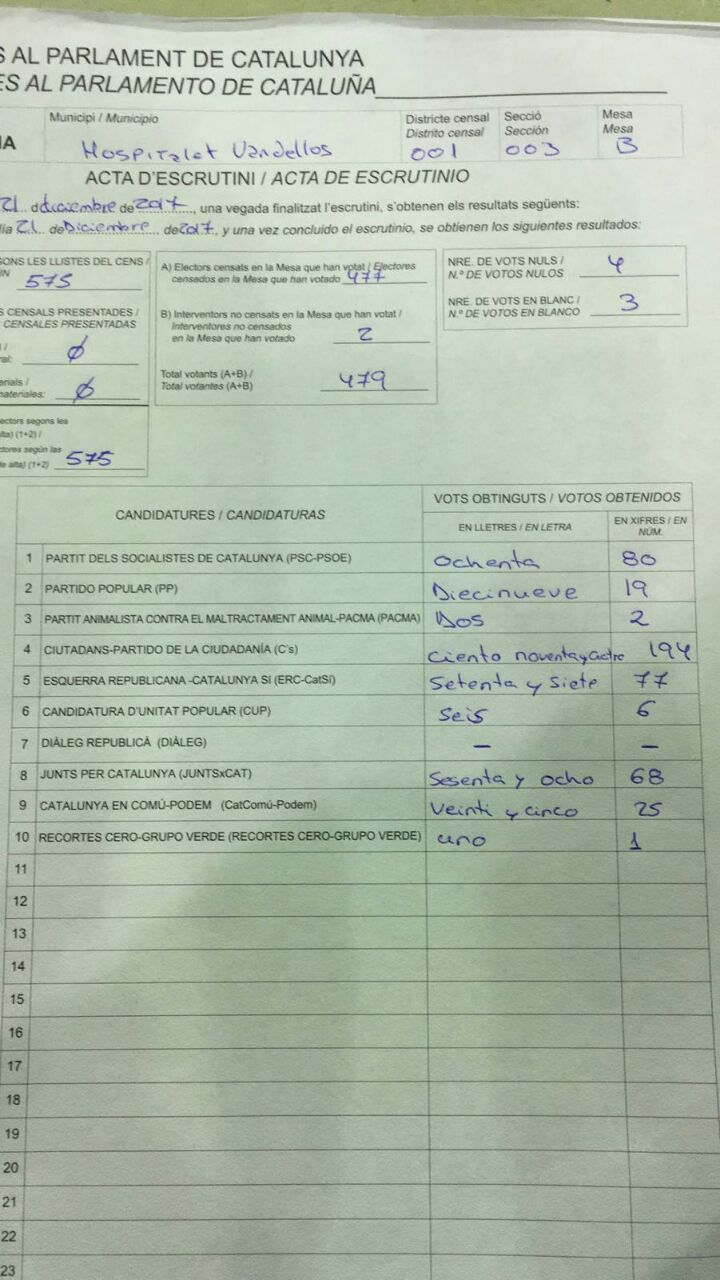 S AL PARLAMENT DE CATALUNYA
ES AL PARLAMENTO DE CATALUÑA
IA
Municipi / Municipio
Hospitalet Vandellos
Districte censal
Distrito censal
001
Secció
Sección
003
Mesa
Mesa
B
ACTA D'ESCRUTINI / ACTA DE ESCRUTINIO
21 d diciembre de 2017, una vegada finalitzat l'escrutini, s'obtenen els resultats següents:
día 21 de Diciembre de 2017, y una vez concluido el escrutinio, se obtienen los siguientes resultados:
GONS LES LLISTES DEL CENS /
ÚN
575
S CENSALS PRESENTADES /
CENSALES PRESENTADAS
l /
ral:
Ø
erials /
materiales:
Ø
ectors segons les
alta) (1+2) /
ctores según las
de alta) (1+2)
575
A) Electors censats en la Mesa que han votat / Electores
censados en la Mesa que han votado
477
B) Interventors no censats en la Mesa que han votat /
Interventores no censados
en la Mesa que han votado
2
Total votants (A+B) /
Total votantes (A+B)
479
NRE. DE VOTS NULS /
N.º DE VOTOS NULOS
4
NRE. DE VOTS EN BLANC /
N.º DE VOTOS EN BLANCO
3
CANDIDATURES / CANDIDATURAS
VOTS OBTINGUTS / VOTOS OBTENIDOS
EN LLETRES / EN LETRA
EN XIFRES / EN NÚM.
1 PARTIT DELS SOCIALISTES DE CATALUNYA (PSC-PSOE) Ochenta 80
2 PARTIDO POPULAR (PP) Diecinueve 19
3 PARTIT ANIMALISTA CONTRA EL MALTRACTAMENT ANIMAL-PACMA (PACMA) Dos 2
4 CIUTADANS-PARTIDO DE LA CIUDADANÍA (C's) Ciento noventa y 194
5 ESQUERRA REPUBLICANA -CATALUNYA SÍ (ERC-CatSí) Setenta y Siete 77
6 CANDIDATURA D'UNITAT POPULAR (CUP) Seis 6
7 DIÀLEG REPUBLICÀ (DIÀLEG) – –
8 JUNTS PER CATALUNYA (JUNTSxCAT) Sesenta y ocho 68
9 CATALUNYA EN COMÚ-PODEM (CatComú-Podem) Veinti y cinco 25
10 RECORTES CERO-GRUPO VERDE (RECORTES CERO-GRUPO VERDE) uno 1
11
12
13
14
15
16
17
18
19
20
21
22
23